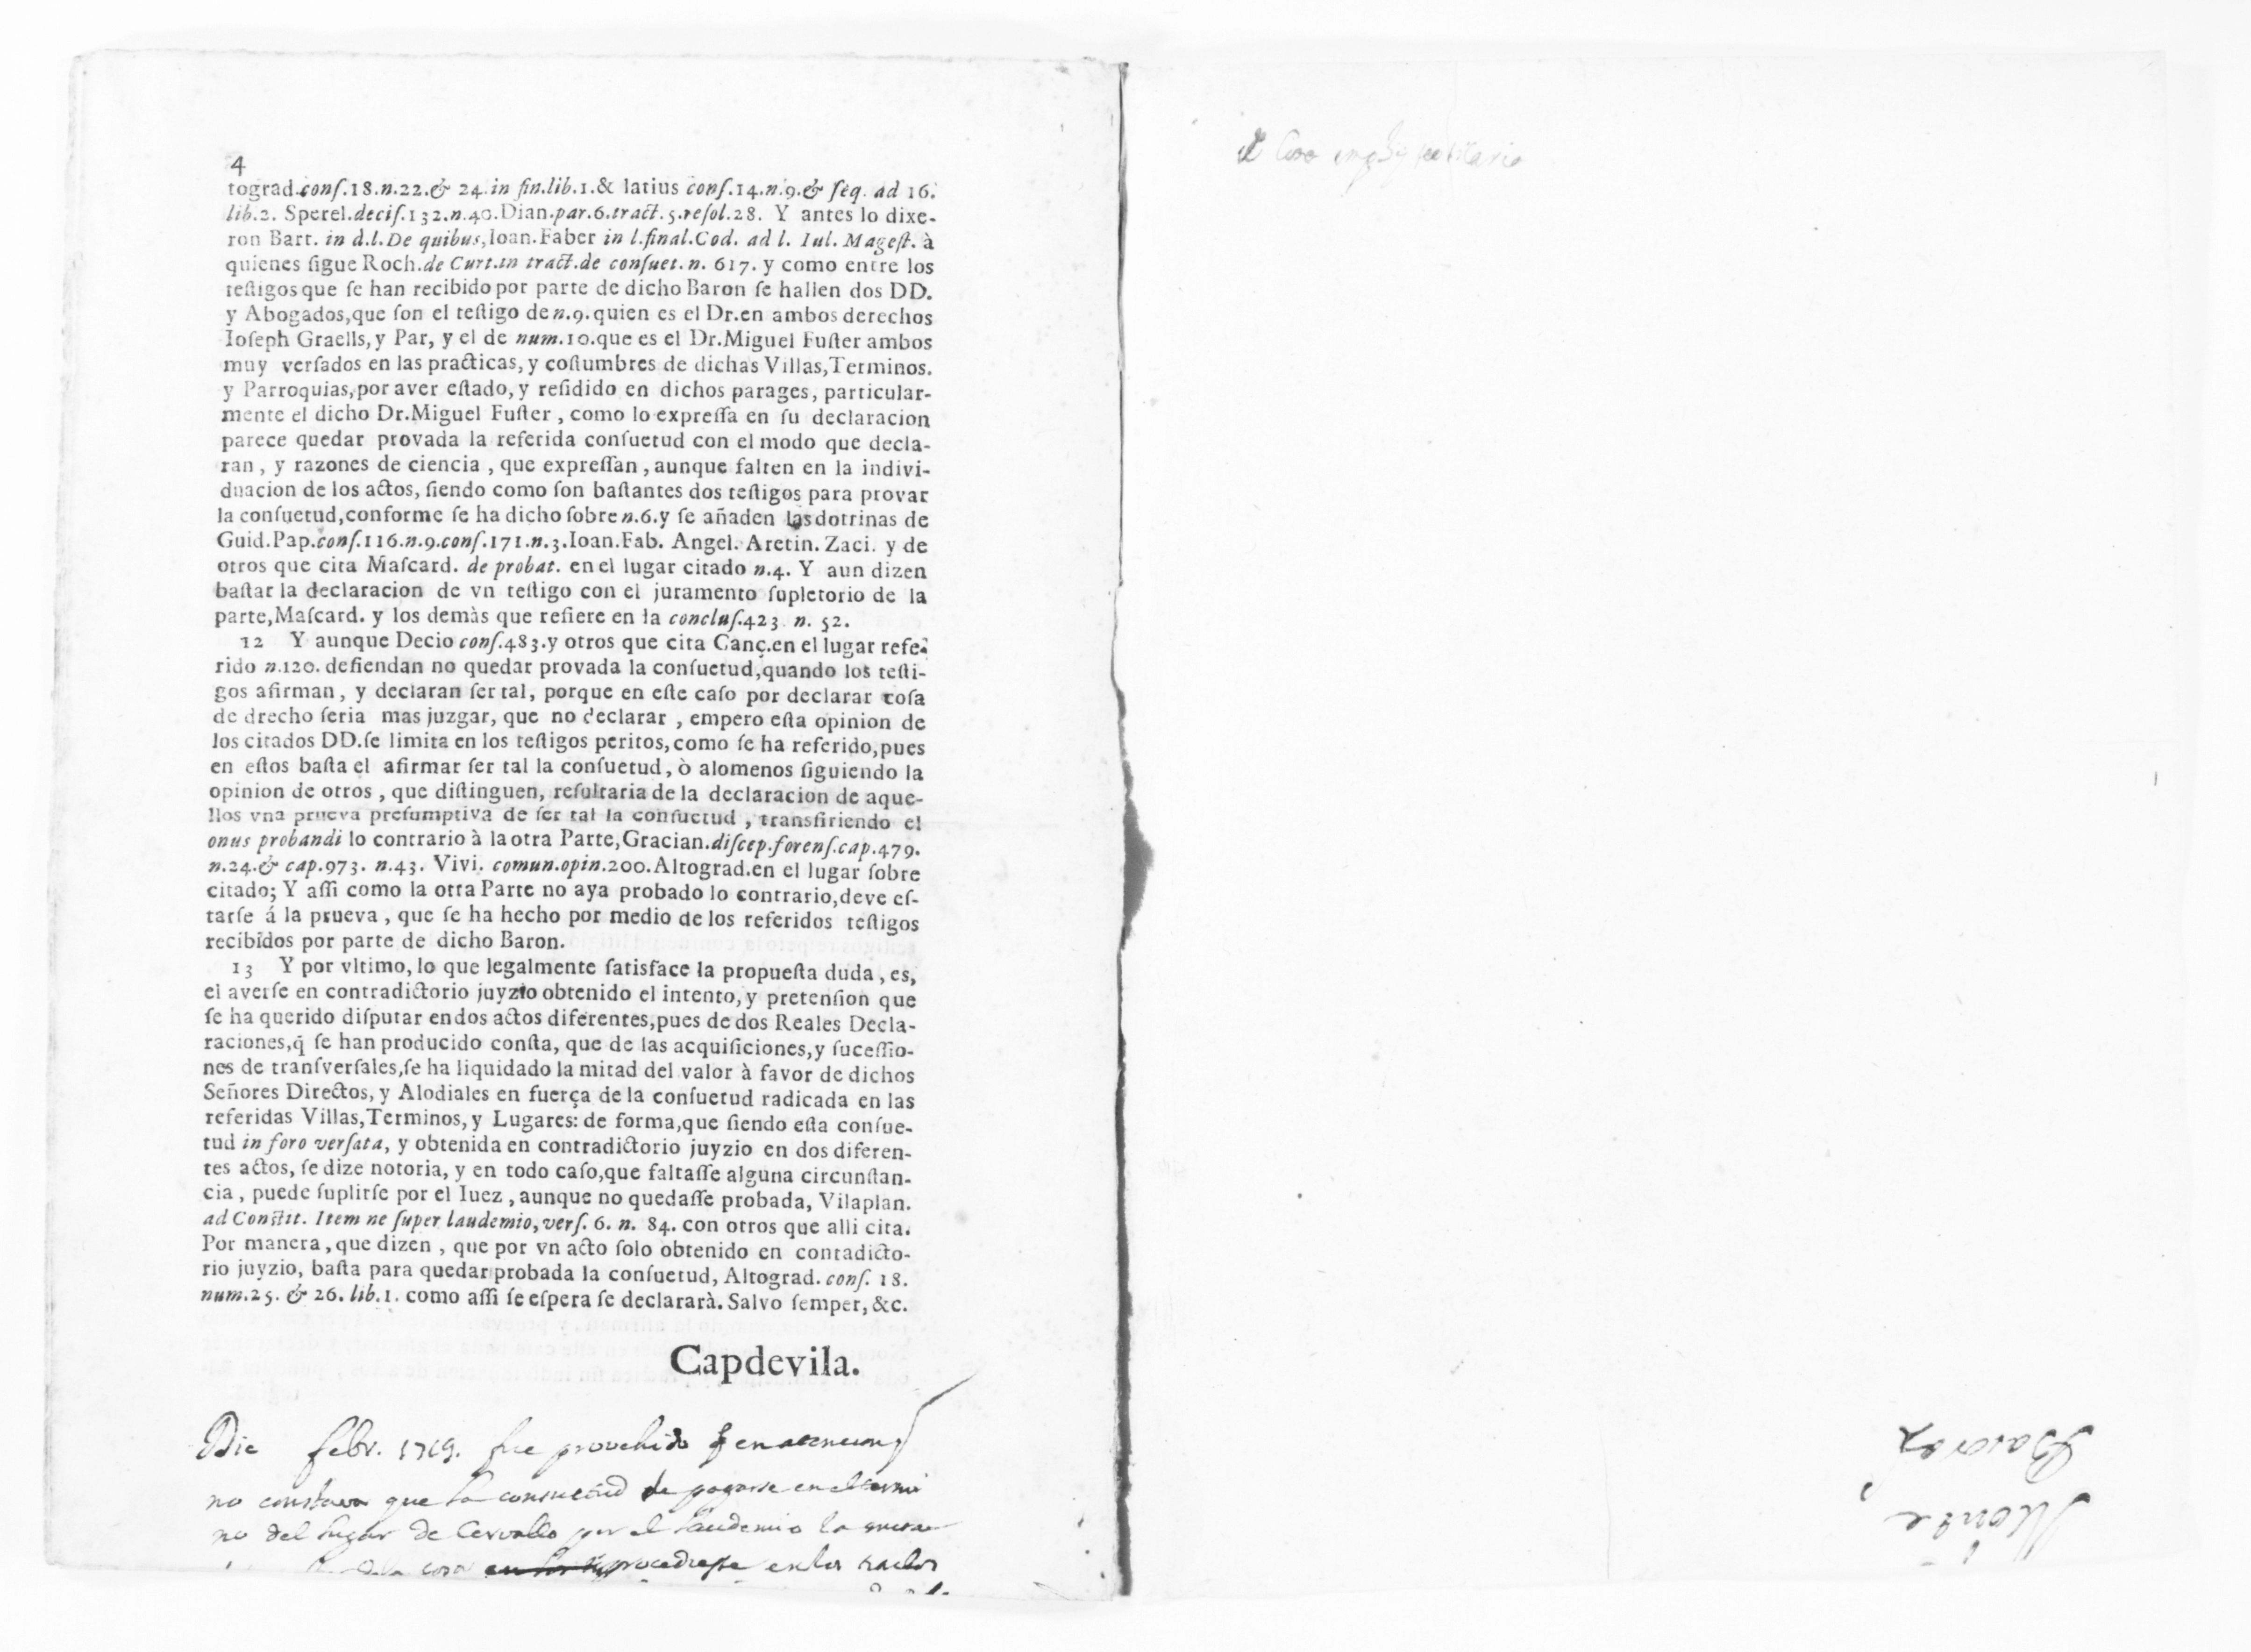 4
tograd.conſ.18.n.22.& 24.in fin.lib.1.& latius conſ.14.n.9.& ſeq. ad 16.
lib.2. Sperel.deciſ.132.n.40.Dian.par.6.tract.5.reſol.28. Y antes lo dixe-
ron Bart. in d.l.De quibus,Ioan.Faber in l.final.Cod. ad l. Iul. Mageſt. à
quienes ſigue Roch.de Curt.in tract.de conſuet. n. 617. y como entre los
teſtigos que ſe han recibido por parte de dicho Baron ſe hallen dos DD.
y Abogados,que ſon el teſtigo de n.9.quien es el Dr.en ambos derechos
Ioſeph Graells,y Par, y el de num.10.que es el Dr.Miguel Fuſter ambos
muy verſados en las practicas,y coſtumbres de dichas Villas,Terminos.
y Parroquias,por aver eſtado,y reſidido en dichos parages, particular-
mente el dicho Dr.Miguel Fuſter , como lo expreſſa en ſu declaracion
parece quedar provada la referida conſuetud con el modo que decla-
ran , y razones de ciencia , que expreſſan , aunque falten en la indivi-
duacion de los actos, ſiendo como ſon baſtantes dos teſtigos para provar
la conſuetud,conforme ſe ha dicho ſobre n.6.y ſe añaden las dotrinas de
Guid.Pap.conſ.116.n.9.conſ.171.n.3.Ioan.Fab. Angel. Aretin. Zaci. y de
otros que cita Maſcard. de probat. en el lugar citado n.4. Y aun dizen
baſtar la declaracion de vn teſtigo con el juramento ſupletorio de la
parte,Maſcard. y los demàs que refiere en la concluſ.423. n. 52.
12 Y aunque Decio conſ.483.y otros que cita Canç.en el lugar refe-
rido n.120. defiendan no quedar provada la conſuetud,quando los teſti-
gos afirman , y declaran ſer tal, porque en eſte caſo por declarar coſa
de drecho ſeria mas juzgar, que no declarar , empero eſta opinion de
los citados DD.ſe limita en los teſtigos peritos,como ſe ha referido,pues
en eſtos baſta el afirmar ſer tal la conſuetud , ò alomenos ſiguiendo la
opinion de otros , que diſtinguen, reſultaria de la declaracion de aque-
llos vna prueva preſumptiva de ſer tal la conſuetud , transfiriendo el
onus probandi lo contrario à la otra Parte,Gracian.diſcep.forenſ.cap.479.
n.24.& cap.973. n.43. Vivi. comun.opin.200.Altograd.en el lugar ſobre
citado; Y aſſi como la otra Parte no aya probado lo contrario,deve eſ-
tarſe á la prueva , que ſe ha hecho por medio de los referidos teſtigos
recibidos por parte de dicho Baron.
13 Y por vltimo, lo que legalmente ſatisface la propueſta duda , es,
el averſe en contradictorio juyzio obtenido el intento,y pretenſion que
ſe ha querido diſputar en dos actos diferentes,pues de dos Reales Decla-
raciones,q̃ ſe han producido conſta, que de las acquiſiciones,y ſuceſſio-
nes de tranſverſales,ſe ha liquidado la mitad del valor à favor de dichos
Señores Directos, y Alodiales en fuerça de la conſuetud radicada en las
referidas Villas,Terminos, y Lugares: de forma,que ſiendo eſta conſue-
tud in foro verſata, y obtenida en contradictorio juyzio en dos diferen-
tes actos, ſe dize notoria, y en todo caſo,que faltaſſe alguna circunſtan-
cia , puede ſuplirſe por el Iuez , aunque no quedaſſe probada, Vilaplan.
ad Conſtit. Item ne ſuper laudemio,verſ. 6. n. 84. con otros que alli cita.
Por manera , que dizen , que por vn acto ſolo obtenido en contradicto-
rio juyzio, baſta para quedar probada la conſuetud, Altograd. conſ. 18.
num.25. & 26. lib.1. como aſſi ſe eſpera ſe declararà. Salvo ſemper, &c.
Capdevila.
Die febr. 1719. fue provehido
no constava que la consuetud de pagarse en el termi
no del lugar de Cervello por el laudemio la
cosa procediesse en los